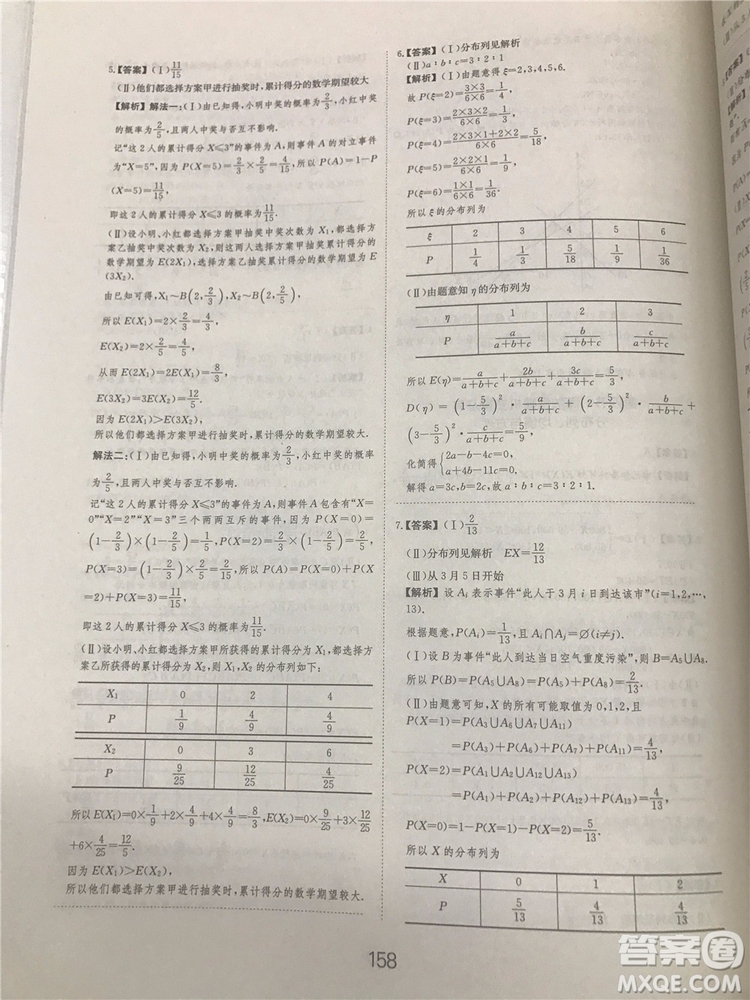 5.【答案】(Ⅰ)11/15
(Ⅱ)他们都选择方案甲进行抽奖时,累计得分的数学期望较大
【解析】解法一:(Ⅰ)由已知得,小明中奖的概率为2/3,小红中奖的
概率为2/5,且两人中奖与否互不影响.
记“这2人的累计得分X≤3”的事件为A,则事件A的对立事件
为“X=5”,因为P(X=5)=2/3×2/5=4/15,所以P(A)=1-P
(X=5)=11/15,
即这2人的累计得分X≤3的概率为11/15.
(Ⅱ)设小明、小红都选择方案甲抽奖中奖次数为X₁,都选择方
案乙抽奖中奖次数为X₂,则这两人选择方案甲抽奖累计得分的
数学期望为E(2X₁),选择方案乙抽奖累计得分的数学期望为E
(3X₂).
由已知可得,X₁~B(2,2/3),X₂~B(2,2/5),
所以E(X₁)=2×2/3=4/3,
E(X₂)=2×2/5=4/5,
从而E(2X₁)=2E(X₁)=8/3,
E(3X₂)=3E(X₂)=12/5.
因为E(2X₁)>E(3X₂),
所以他们都选择方案甲进行抽奖时,累计得分的数学期望较大.
解法二:(Ⅰ)由已知得,小明中奖的概率为2/3,小红中奖的概率
为2/5,且两人中奖与否互不影响.
记“这2人的累计得分X≤3”的事件为A,则事件A包含有“X=
0”“X=2”“X=3”三个两两互斥的事件,因为P(X=0)=
(1-2/3)×(1-2/5)=1/5,P(X=2)=2/3×(1-2/5)=2/5,
P(X=3)=(1-2/3)×2/5=2/15,所以P(A)=P(X=0)+P(X=
2)+P(X=3)=11/15,
即这2人的累计得分X≤3的概率为11/15.
(Ⅱ)设小明、小红都选择方案甲所获得的累计得分为X₁,都选择方
案乙所获得的累计得分为X₂,则X₁,X₂的分布列如下:
X₁ 0 2 4
P 1/9 4/9 4/9
X₂ 0 3 6
P 9/25 12/25 4/25
所以E(X₁)=0×1/9+2×4/9+4×4/9=8/3,E(X₂)=0×9/25+3×12/25
+6×4/25=12/5.
因为E(X₁)>E(X₂),
所以他们都选择方案甲进行抽奖时,累计得分的数学期望较大.
6.【答案】(Ⅰ)分布列见解析
(Ⅱ)a∶b∶c=3∶2∶1
【解析】(Ⅰ)由题意得ξ=2,3,4,5,6.
故P(ξ=2)=3×3/6×6=1/4,
P(ξ=3)=2×3×2/6×6=1/3,
P(ξ=4)=2×3×1+2×2/6×6=5/18,
P(ξ=5)=2×2×1/6×6=1/9,
P(ξ=6)=1×1/6×6=1/36.
所以ξ的分布列为
ξ 2 3 4 5 6
P 1/4 1/3 5/18 1/9 1/36
(Ⅱ)由题意知η的分布列为
η 1 2 3
P a/a+b+c b/a+b+c c/a+b+c
所以E(η)=a/a+b+c+2b/a+b+c+3c/a+b+c=5/3,
D(η)=(1-5/3)²·a/a+b+c+(2-5/3)²·b/a+b+c+
(3-5/3)²·c/a+b+c=5/9,
化简得{2a-b-4c=0,
a+4b-11c=0.
解得a=3c,b=2c,故a∶b∶c=3∶2∶1.
7.【答案】(Ⅰ)2/13
(Ⅱ)分布列见解析 EX=12/13
(Ⅲ)从3月5日开始
【解析】设Aᵢ表示事件“此人于3月i日到达该市”(i=1,2,…,
13).
根据题意,P(Aᵢ)=1/13,且Aᵢ∩Aⱼ=∅(i≠j).
(Ⅰ)设B为事件“此人到达当日空气重度污染”,则B=A₅∪A₈.
所以P(B)=P(A₅∪A₈)=P(A₅)+P(A₈)=2/13.
(Ⅱ)由题意可知,X的所有可能取值为0,1,2,且
P(X=1)=P(A₃∪A₆∪A₇∪A₁₁)
=P(A₃)+P(A₆)+P(A₇)+P(A₁₁)=4/13,
P(X=2)=P(A₁∪A₂∪A₁₂∪A₁₃)
=P(A₁)+P(A₂)+P(A₁₂)+P(A₁₃)=4/13,
P(X=0)=1-P(X=1)-P(X=2)=5/13.
所以X的分布列为
X 0 1 2
P 5/13 4/13 4/13
158
答案圈
MXQE.COM